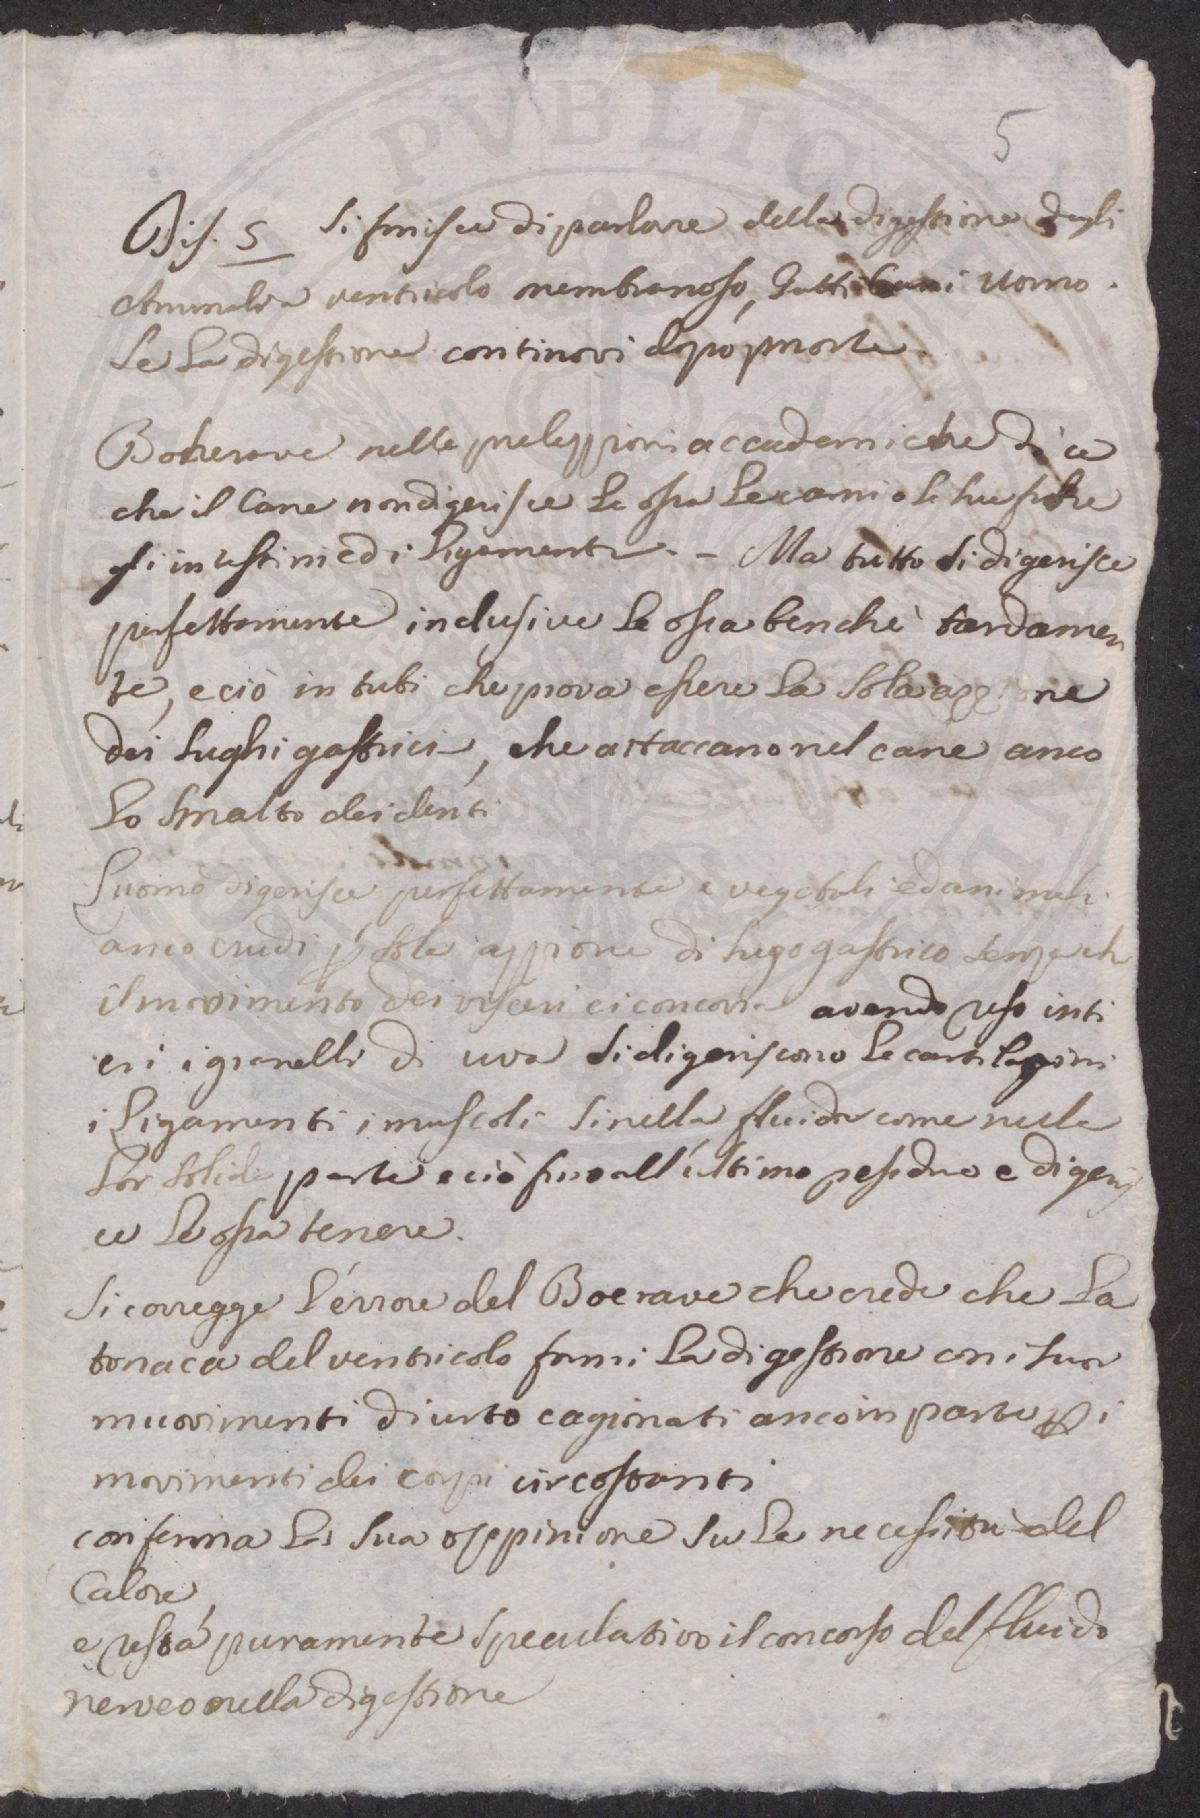 5
Dis. 5 Si finisce di parlare della digestione degli
Animali a ventricolo membranoso, Gatti Cani Uomo.
Se la digestione continovi dopo morte.
Boherave nelle prelezzioni accademiche dice
che il Cane non digerisce le ossa le carni o le sue fibre
gl'intestini ed i ligamenti - Ma tutto si digerisce
perfettamente inclusive le ossa benchè tardamen
te, e ciò in tubi che prova essere la sola azzione
dei sughi gastrici, che attaccano nel cane anco
lo smalto dei denti
L'uomo digerisce perfettamente e vegetali ed animali
anco crudi p sola azzione di sugo gastrico senza ch
il movimento dei visceri ci concorra avendo reso inti
eri i granelli di uva si digeriscono le cartilagini
i ligamenti i muscoli si nella fluida come nella
lor solida parte e ciò fino all'ultimo residuo e digeris
ce le ossa tenere.
Si corregge l'errore del Boerave che crede che la
tonaca del ventricolo formi la digestione con i suoi
muovimenti di urto cagionati anco in parte p i
movimenti dei corpi circostanti
conferma la sua oppinione su la necessità del
Calore,
e resta puramente speculativo il concorso del fluido
nerveo nella digestione